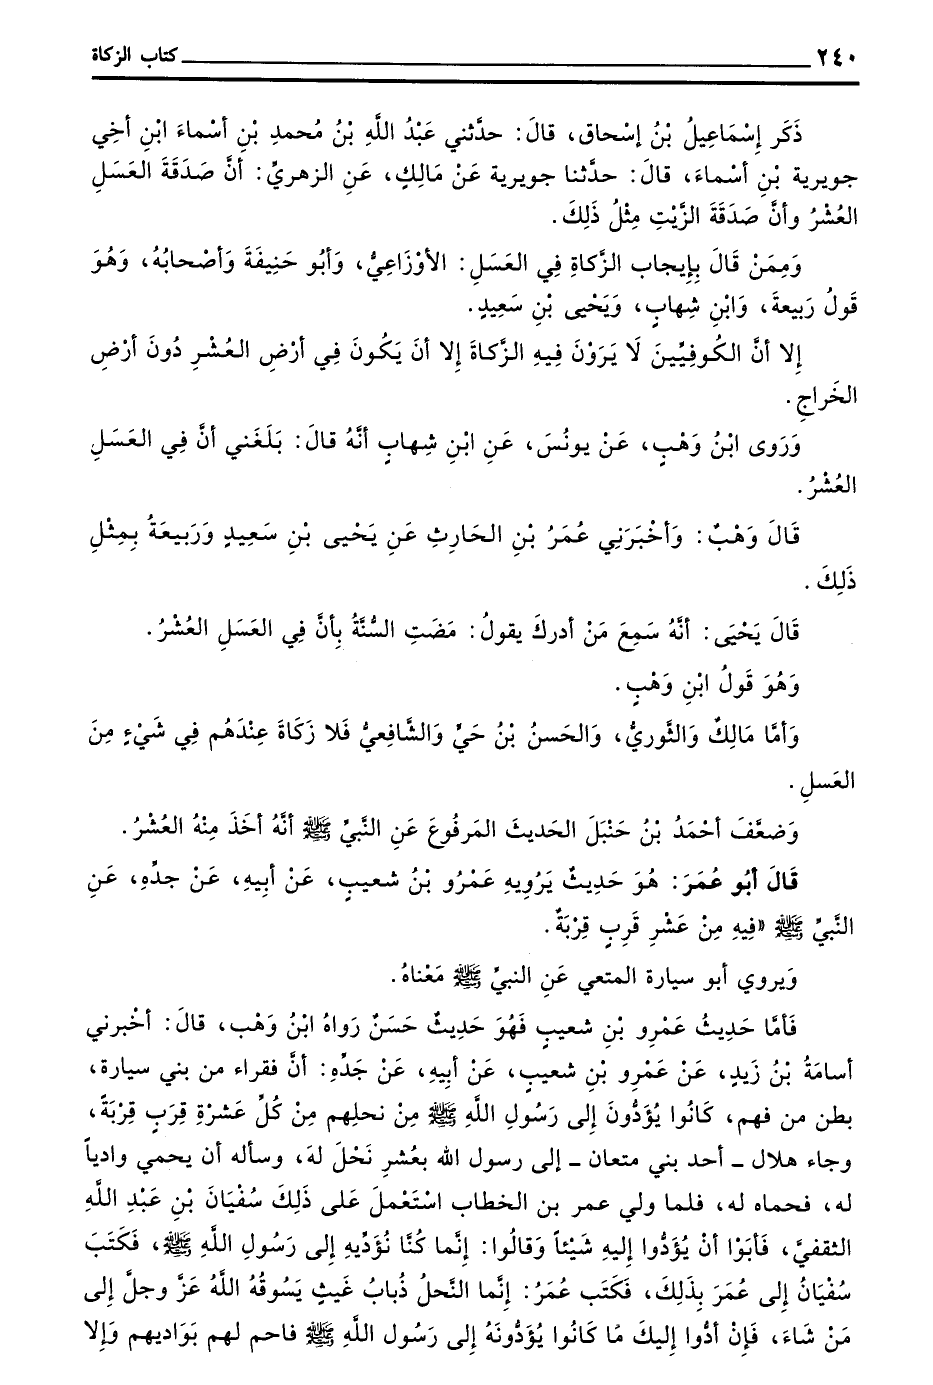 ٢٤٠ كتاب الزكاة
ذَكَر إِسْمَاعِيلُ بْنُ إسْحاق، قالَ: حدَّثني عَبْدُ اللَّهِ بْنُ مُحمدِ بْنِ أسْماءَ ابْنِ أخِي
جويرية بْنِ أسْماءَ، قالَ: حدَّثنا جويرية عَنْ مَالِكٍ، عَنِ الزهريِّ: أنَّ صَدَقَةَ العَسَلِ
العُشْرُ وأنَّ صَدَقَةَ الزَّيْتِ مِثْلُ ذَلِكَ.
وَمِمَنْ قَالَ بِإيجاب الزَّكاةِ فِي العَسَلِ: الأوْزَاعِيُّ، وَأبُو حَنِيفَةَ وَأصْحابُهُ، وَهُوَ
قَولُ رَبيعةَ، وَابْنِ شِهابٍ، وَيَحْيى بْنِ سَعِيدٍ.
إلا أنَّ الكُوفِيِّينَ لَا يَرَوْنَ فيهِ الزَّكاةَ إلا أنَ يَكُونَ فِي أرْضِ العُشْرِ دُونَ أرْضِ
الخَراجِ.
وَرَوى ابْنُ وَهْبٍ، عَنْ يونُسَ، عَنِ ابْنِ شِهابٍ أنَّهُ قالَ: بَلَغَني أنَّ فِي العَسَلِ
العُشْرُ.
قَالَ وَهْبٌ: وَأخْبَرَنِي عُمَرُ بْنِ الحَارِثِ عَن يَحْيى بْنِ سَعِيدٍ وَرَبيعَةُ بِمِثْلِ
ذَلِكَ.
قَالَ يَحْيَى: أنَّهُ سَمِعَ مَنْ أدركَ يقولُ: مَضَتِ السُّنَّةُ بِأنَّ فِي العَسَلِ العُشْرُ.
وَهُوَ قَولُ ابْنِ وَهْبٍ.
وَأمَّا مَالِكٌ وَالثَّوريُّ، وَالحَسنُ بْنُ حَيٍّ وَالشَّافِعيُّ فَلا زكَاةَ عِنْدَهُم فِي شَيْءٍ مِنَ
العَسلِ.
وَضعَّفَ أحْمَدُ بْنُ حَنْبَلَ الحَديثَ المَرفُوعَ عَنِ النَّبيِّ ﷺ أنَّهُ أخَذَ مِنْهُ العُشْرُ.
قَالَ أَبُو عُمَرَ: هُوَ حَدِيثٌ يَرْوِيهِ عَمْرُو بْنُ شعيبٍ، عَنْ أبيهِ، عَنْ جدِّهِ، عَنِ
النَّبيِّ ﷺ «فِيهِ مِنْ عَشْرِ قَربٍ قِرْبَةٌ.
وَيروي أبو سيارة المتعي عَنِ النبيِّ ﷺ مَعْناهُ.
فَأمَّا حَدِيثُ عَمْرِو بْنِ شعيبٍ فَهُوَ حَدِيثٌ حَسَنٌ رَواهُ ابْنُ وَهْب، قالَ: أخْبرني
أسامَةُ بْنُ زَيدٍ، عَنْ عَمْرِو بْنِ شعيبٍ، عَنْ أبيهِ، عَنْ جَدِّهِ: أنَّ فقراء من بني سيارة،
بطن من فهم، كَانُوا يُؤَدُّونَ إلى رَسُولِ اللَّهِ ﷺ مِنْ نحلِهم مِنْ كُلِّ عَشرْةِ قِرَبٍ قِرْبَةً،
وجاء هلال ـ أحد بني متعان ـ إلى رسول الله بعُشرِ نَحْلَ لهَ، وسأله أن يحمي وادياً
له، فحماه له، فلما ولي عمر بن الخطاب اسْتَعْملَ عَلى ذَلِكَ سُفْيَانَ بْنِ عَبْدِ اللَّهِ
الثقفيَّ، فَأبَوْا أنْ يُؤَدُّوا إليهِ شَيْئاً وَقالُوا: إنَّما كُنَّا نُؤَدِّيهِ إلى رَسُولِ اللَّهِ ﷺ، فَكَتَبَ
سُفْيَانُ إلى عُمَرَ بِذَلِكَ، فَكتَب عُمَرُ: إنَّما النَّحلُ ذُبابُ غَيثٍ يَسُوقُهُ اللَّهُ عَزَّ وجلَّ إلى
مَنْ شَاءَ، فَإنْ أدُّوا إليكَ مُا كَانُوا يُؤَدُّونَهُ إلى رَسُولِ اللَّهِ ﷺ فاحم لهم بَوَاديهم وَإلا